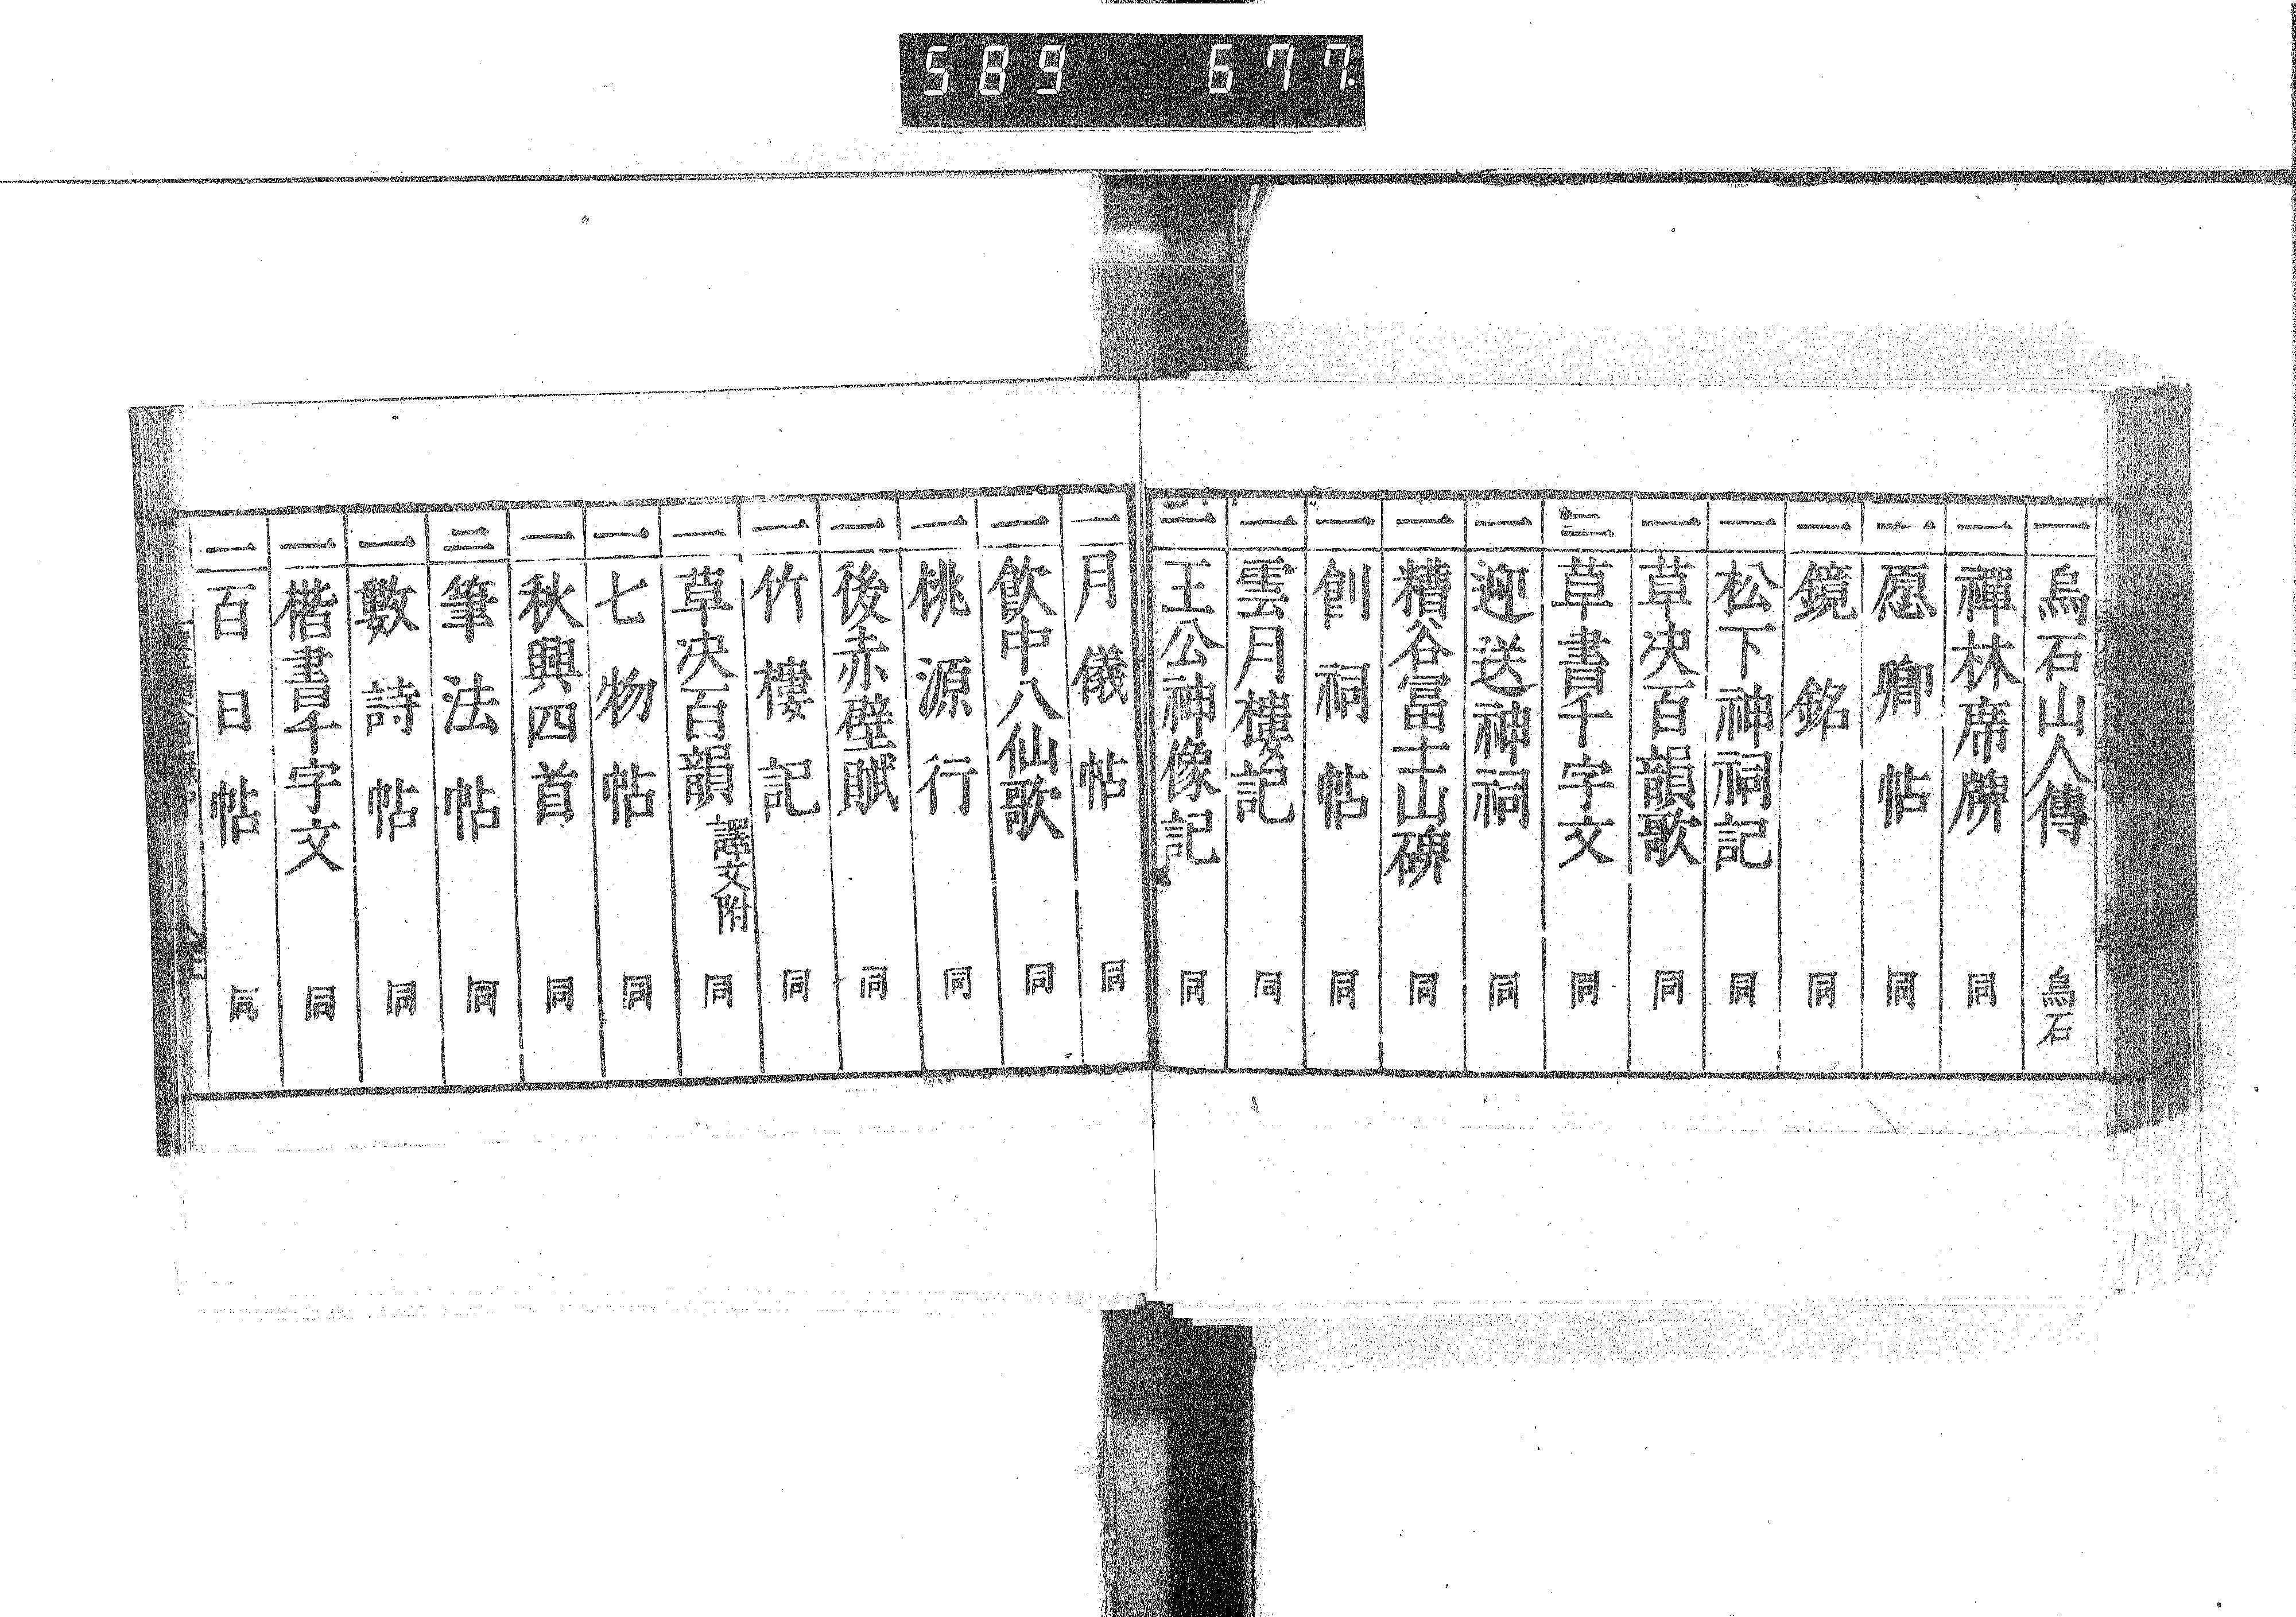 589 677.
一 烏石山人傳 烏石
一 禪林席牌 同
一 愿卿帖 同
一 鏡銘 同
一 松下神祠記 同
一 草决百韻歌 同
二 草書千字文 同
一 迎送神祠 同
一 糟谷冨士山碑 同
一 創祠帖 同
一 雲月樓記 同
一 王公神像記 同
一 月儀帖 同
一 飲中八仙歌 同
一 桃源行 同
一 後赤壁賦 同
一 竹樓記 同
一 草决百韻 譯文附 同
一 七物帖 同
一 秋興四首 同
二 筆法帖 同
一 數詩帖 同
一 楷書千字文 同
一 百日帖 同